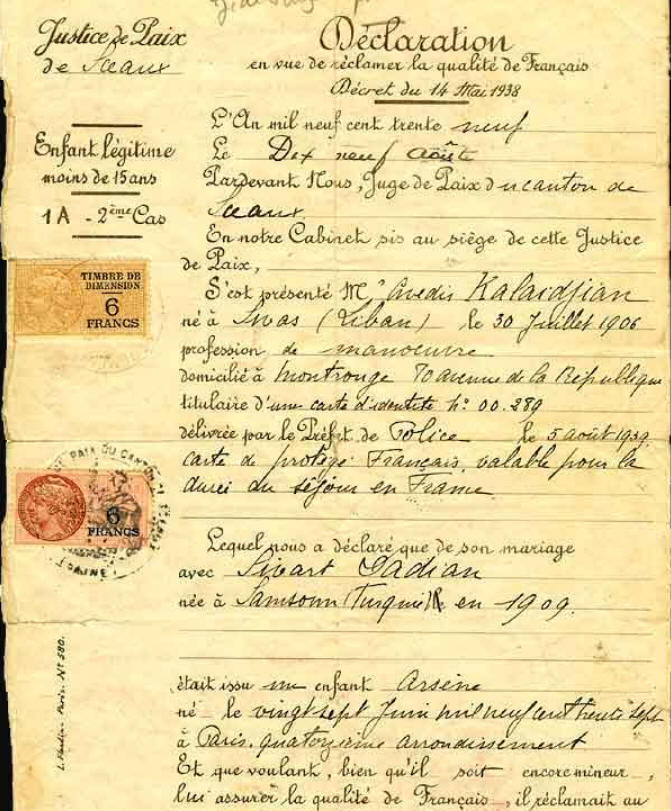 Justice de Paix
de Sceaux
Enfant légitime
moins de 15 ans
1 A - 2ème Cas
TIMBRE DE
DIMENSION
6
FRANCS
6
FRANCS
Déclaration
en vue de réclamer la qualité de Français
Décret du 14 Mai 1938
L'An mil neuf cent trente neuf
Le Dix neuf août
Pardevant Nous, Juge de Paix du canton de
Sceaux
En notre Cabinet sis au siège de cette Justice
de Paix,
S'est présenté Mr Avedis Kalaidjian
né à Sivas (Liban) le 30 Juillet 1906
profession de manoeuvre
domicilié à Montrouge 70 avenue de la République
titulaire d'une carte d'identité n° 00.289
délivrée par le Préfet de Police le 5 août 1939.
carte de protégé Français, valable pour la
durée du séjour en France
Lequel nous a déclaré que de son mariage
avec Sivart Dadian
née à Samsoun Turquie en 1909.
était issu un enfant Arsène
né le vingt sept Juin mil neuf cent trente sept
à Paris. quatorzième arrondissement
Et que voulant, bien qu'il soit encore mineur,
lui assurer la qualité de Français, il réclamait au
Paris. No 580.